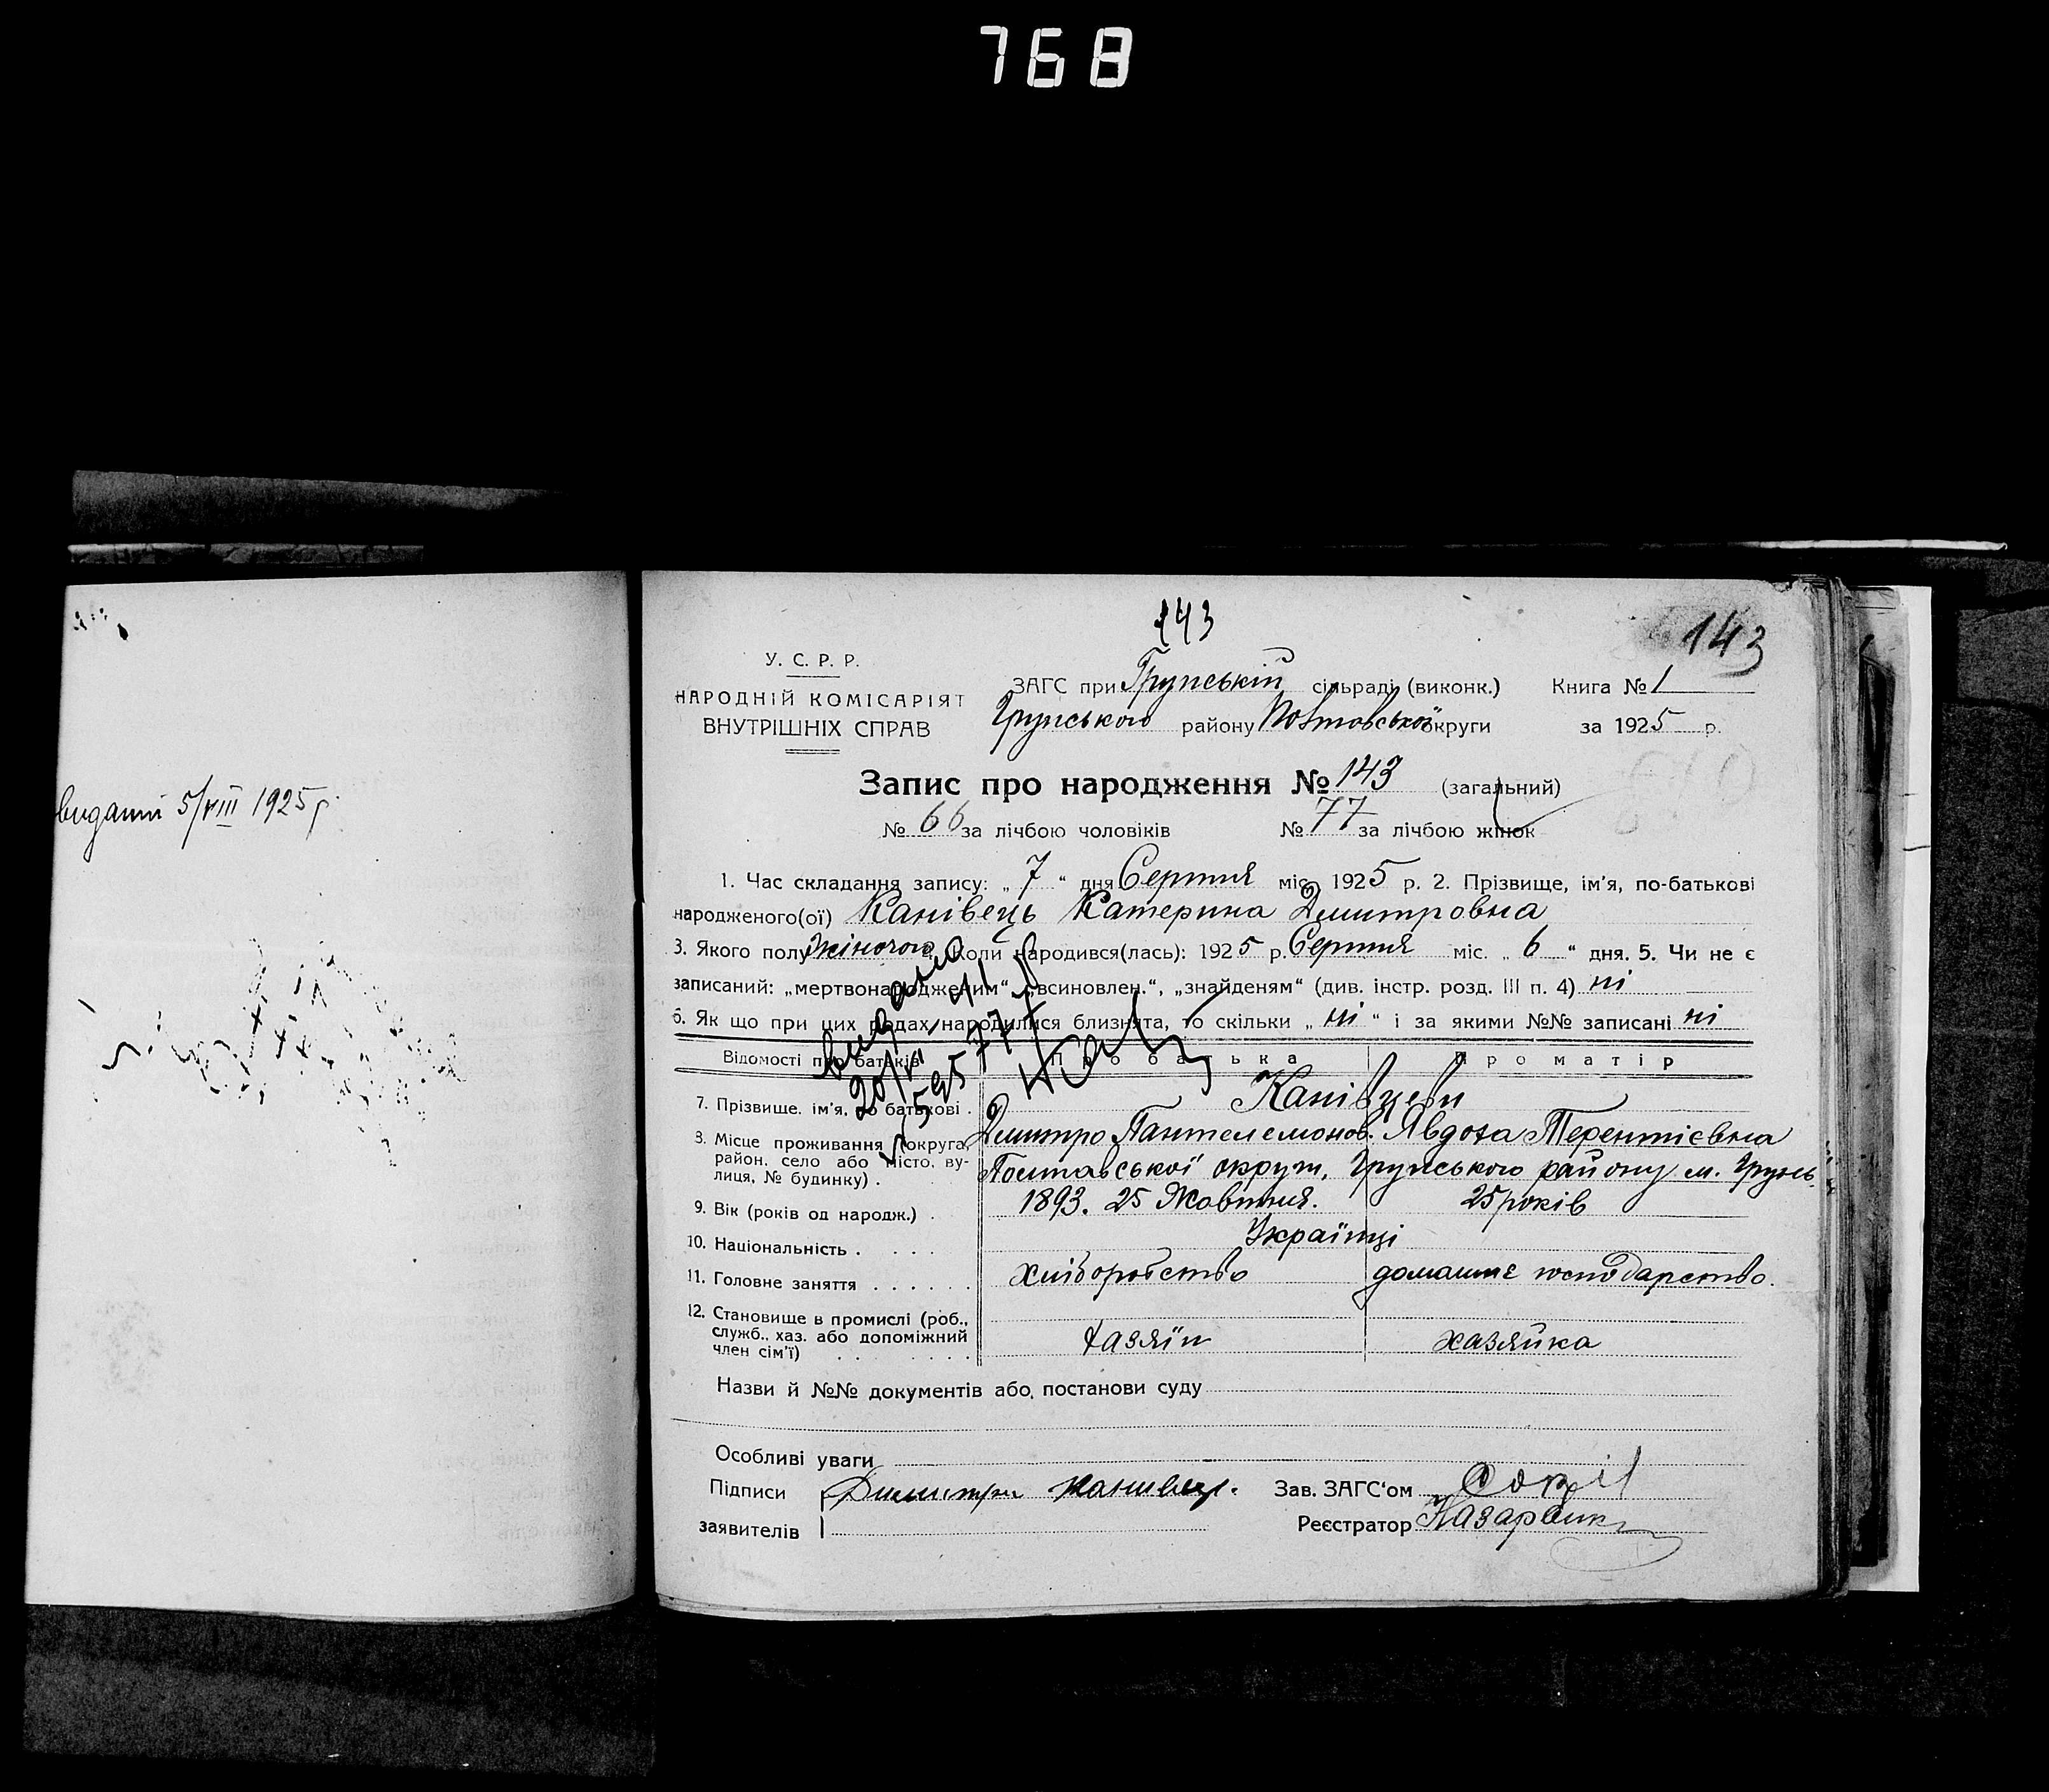 768
видании 5/VIII 1925 р.
143
143
У. С. Р. Р.
НАРОДНІЙ КОМІСАРІЯТ
ВНУТРІШНІХ СПРАВ
ЗАГС при Грунській сільраді (виконк.) Книга № 1
Грунського району Полтавської округи за 1925 р.
Запис про народження № 143 (загальний)
№ 66 за лічбою чоловіків № 77 за лічбою жінок
1. Час складання запису: „ 7 “ дня Серпня міс. 1925 р. 2. Прізвище, ім’я, по-батькові
народженого(ої) Канівець Катерина Дмитровна
3. Якого полу Жіночого Коли народився(лась): 1925 р. Серпня міс. „ 6 “ дня. 5. Чи не є
записаний: „мертвонародженим“ „всиновлен.“, „знайденям“ (див. інстр. розд. III п. 4) ні
6. Як що при цих родах народилися близнята, то скільки „ ні “ і за якими №№ записані ні
видано
Відомості про батьків Про батька Про матір
7. Прізвище, ім’я, по батькові . Канівцеви
Дмитро Пантелемонов. Явдоха Терентієвна
8. Місце проживання (округа,
район, село або місто, ву-
лиця, № будинку) . Полтавської округи, Грунського району м. Грунь
9. Вік (років од народж.) . 1893. 25 Жовтня. 25 років
10. Національність . . . . Українці
11. Головне заняття . . . . . . хліборобство домашнє господарство.
12. Становище в промислі (роб.,
служб., хаз. або допоміжний
член сім’ї) . . . . . . . . хазяїн хазяйка
Назви й №№ документів або, постанови суду
Особливі уваги
Підписи Димитри Канивец. Зав. ЗАГС‘ом
заявителів Реєстратор